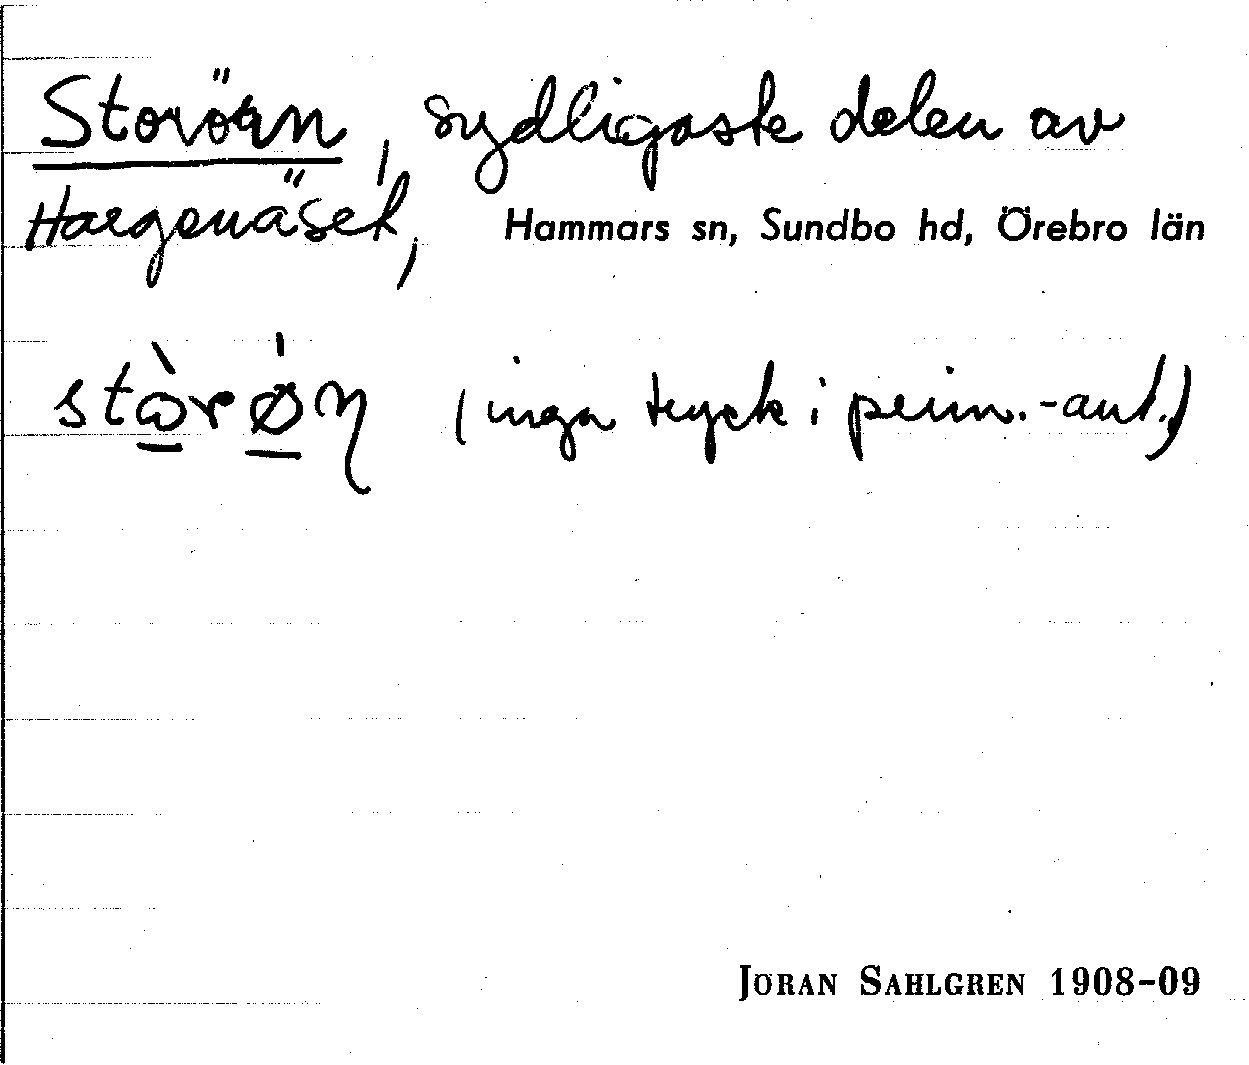 Storörn, sydligaste delen av
Hargenäset, Hammars sn, Sundbo hd, Örebro län
stòrǿn (inga tryck i prim.-ant.)
JÖRAN SAHLGREN 1908-09